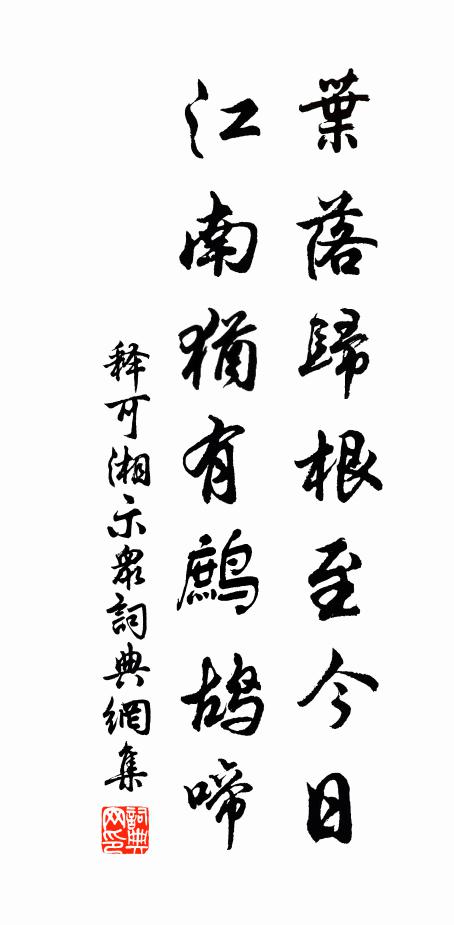 葉落歸根至今日
江南猶有鷓鴣啼
释可湘示眾詞典網集
詞典网印